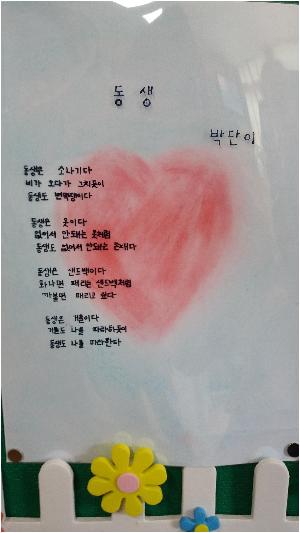 동생
박단이
동생은 소나기다
비가 오다가 그치듯이
동생도 변덕쟁이다
동생은 옷이다
없어서 안되는 옷처럼
동생도 없어서 안되는 존재다
동생은 샌드백이다
화나면 때리는 샌드백처럼
까불면 때리고 싶다
동생은 거울이다
거울도 나를 따라하듯이
동생도 나를 따라한다